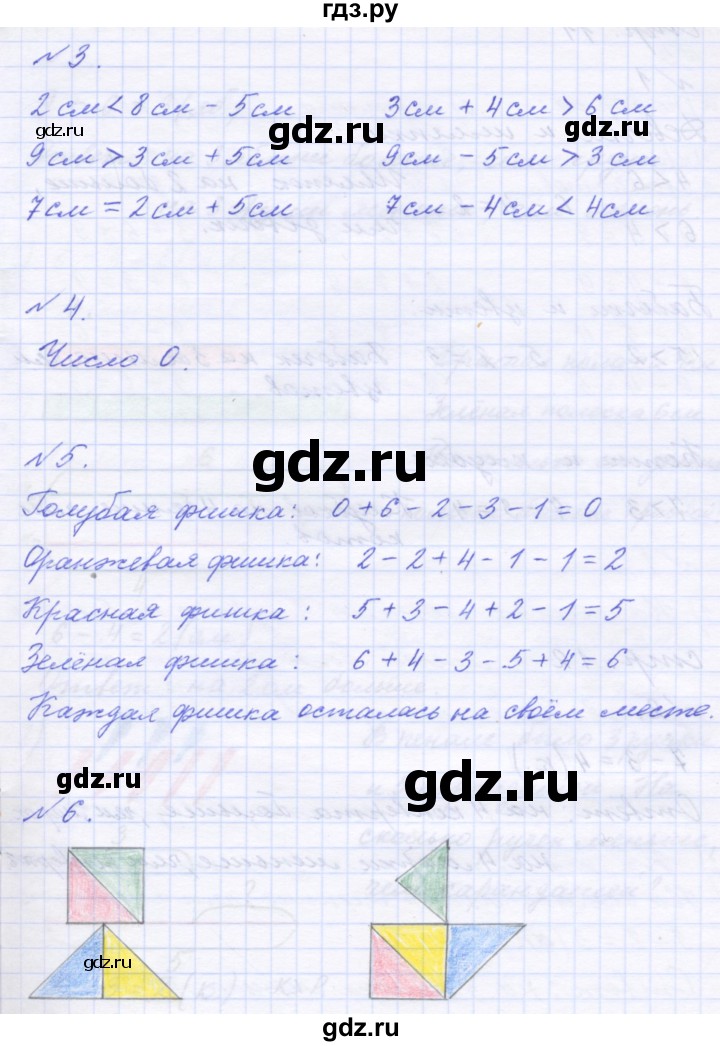 гдз.ру
№3.
2см<8см-5см 3см+4см>6см
9см>3см+5см 9см-5см>3см
7см=2см+5см 7см-4см<4см
gdz.ru
gdz.ru
№4.
Число 0.
gdz.ru
№5.
Голубая фишка: 0+6-2-3-1=0
Оранжевая фишка: 2-2+4-1-1=2
Красная фишка: 5+3-4+2-1=5
Зелёная фишка: 6+4-3-5+4=6
Каждая фишка осталась на своём месте.
gdz.ru
gdz.ru
№6.
gdz.ru
gdz.ru
gdz.ru